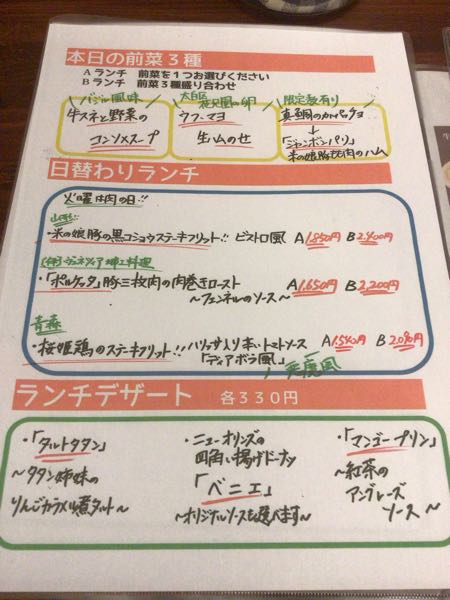 本日の前菜3種
Aランチ 前菜を1つお選びください
Bランチ 前菜3種盛り合わせ
バジル風味
牛スネと野菜の
コンソメスープ
太白区
の卵
ウフ・マヨ
生ハムのせ
限定数有り
真鯛のカルパッチョ
↓
「ジャンボンパリ」
米の娘豚もも肉のハム
日替わりランチ
火曜は肉の日!!
山形
・米の娘豚の黒コショウステーキフリット!! ビストロ風 A1,850円 B2,400円
郷土料理
・「ポルケッタ」豚三枚肉の肉巻きロースト A1,650円 B2,200円
〜フェンネルのソース〜
青森
・桜姫鶏のステーキフリット!! ハリッサ入り赤いトマトソース A1,540円 B2,090円
「ディアボラ風」
悪魔風
ランチデザート 各330円
・「タルトタタン」
〜タタン姉妹の
りんごカラメル煮タルト〜
・ニューオリンズの
四角い揚げドーナツ
「ベニエ」
〜オリジナルソースを選べます〜
・「マンゴープリン」
〜紅茶の
アングレーズ
ソース〜